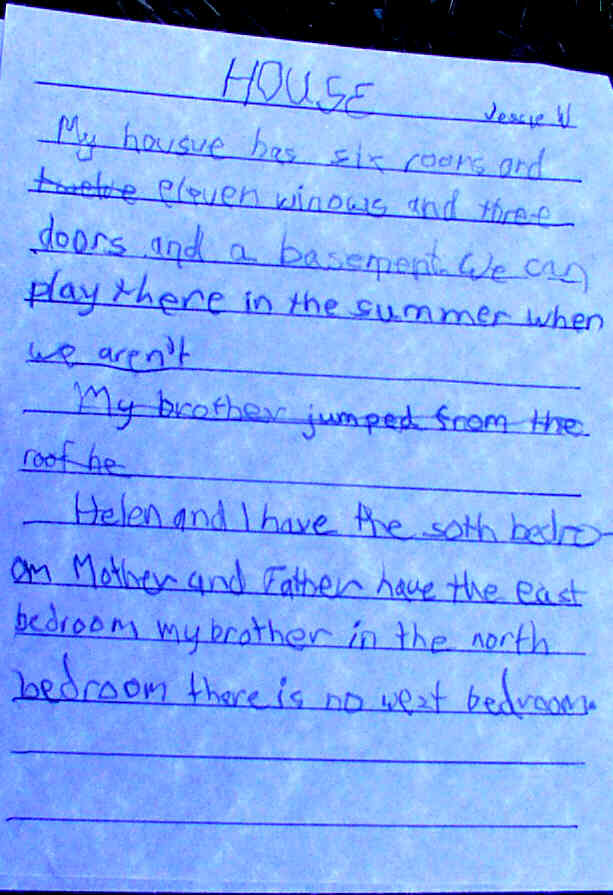 HOUSE
Jessie W
My housue has six rooms and
twelve eleven winows and three
doors and a basement. We can
play there in the summer when
we aren't
My brother jumped from the
roof he
Helen and I have the soth bedro-
om Mother and Father have the east
bedroom my brother in the north
bedroom there is no west bedroom.